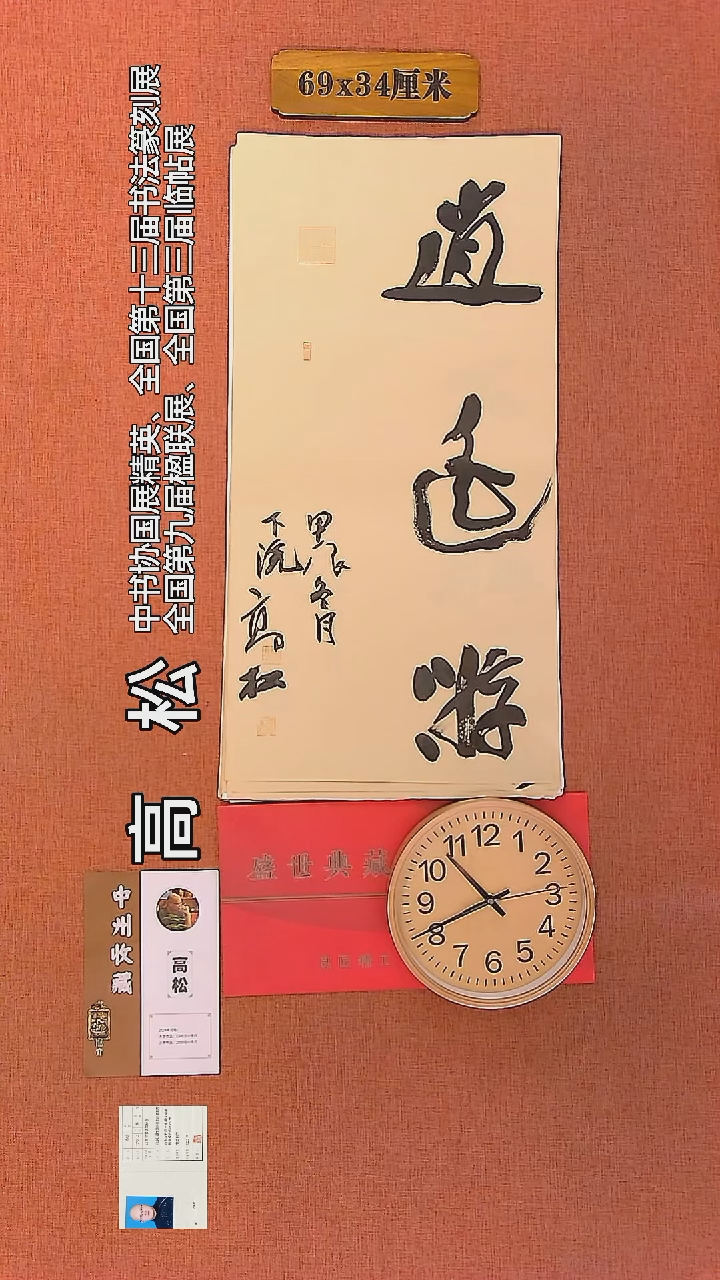 69x34厘米
逍遥游
甲辰冬月
下浣高松
高松
中书协国展精英、全国第十三届书法篆刻展
全国第九届楹联展、全国第三届临帖展
盛世典藏
高松
12
1
2
3
4
5
6
7
8
9
10
11